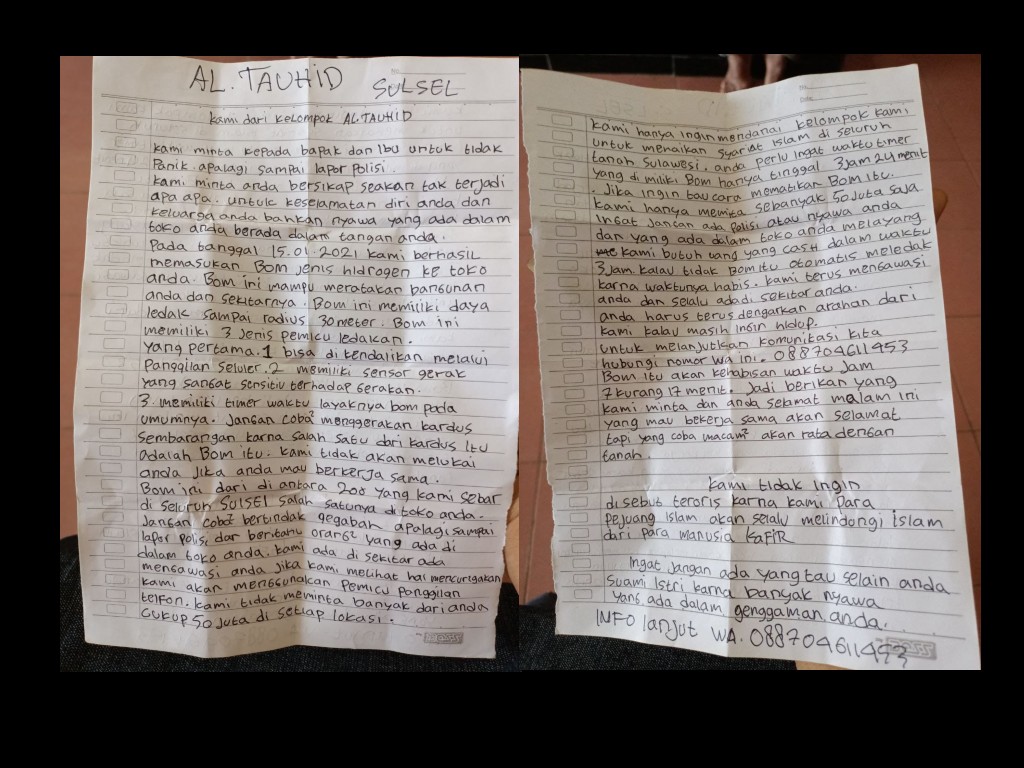 AL. TAUHID SULSEL
kami dari kelompok AL.TAUHID
kami minta kepada bapak dan Ibu untuk tidak
Panik apalagi sampai lapor Polisi
kami minta anda bersikap seakan tak terjadi
apa apa. untuk keselamatan diri anda dan
keluarga anda bahkan nyawa yang ada dalam
toko anda berada dalam tangan anda.
Pada tanggal 15.01.2021 kami berhasil
memasukan Bom jenis hidrogen ke toko
anda. Bom ini mampu meratakan bangunan
anda dan sekitarnya. Bom ini memiliki daya
ledak sampai radius 30 meter. Bom ini
memiliki 3 jenis pemicu ledakan.
yang pertama. 1 bisa di kendalikan melalui
Panggilan seluler. 2 memiliki sensor gerak
yang sangat sensitiv terhadap gerakan.
3. memiliki timer waktu layaknya bom pada
umumnya. Jangan coba² menggerakan kardus
sembarangan karna salah satu dari kardus itu
adalah Bom itu. kami tidak akan melukai
anda jika anda mau berkerja sama.
Bom ini dari di antara 200 yang kami sebar
di seluruh SULSEL salah satunya di toko anda.
Jangan coba² bertindak gegabah apalagi sampai
lapor polisi dar beritahu orang² yang ada di
dalam toko anda. kami ada di sekitar ada
mengawasi anda jika kami melihat hal mencurigakan
kami akan menggunakan Pemicu panggilan
telfon. kami tidak meminta banyak dari anda
cukup 50 juta di setiap lokasi.
kami hanya ingin mendanai kelompok kami
untuk menaikan syariat islam di seluruh
tanah sulawesi. anda perlu ingat waktu timer
yang di miliki Bom hanya tinggal 3 jam 24 menit
. Jika ingin tau cara mematikan Bom itu.
kami hanya memita sebanyak 50 juta saja
Ingat jangan ada polisi atau nyawa anda
dan yang ada dalam toko anda melayang
kami butuh uang yang cash dalam waktu
3 jam kalau tidak Bom itu otomatis meledak
karna waktunya habis. kami terus mengawasi
anda dan selalu ada di sekitar anda.
anda harus terus dengarkan arahan dari
kami kalau masih ingin hidup.
untuk melanjutkan komunikasi kita
hubungi nomor wa ini. 088704611453
Bom itu akan kehabisan waktu Jam
7 kurang 17 menit. Jadi berikan yang
kami minta dan anda selamat malam ini
yang mau bekerja sama akan selamat
tapi yang coba macam² akan rata dengan
tanah.
kami tidak ingin
di sebut teroris karna kami para
pejuang islam akan selalu melindongi islam
dari para manusia KAFIR
Ingat jangan ada yang tau selain anda
suami istri karna banyak nyawa
yang ada dalam genggaman anda.
INFO lanjut WA. 088704611453